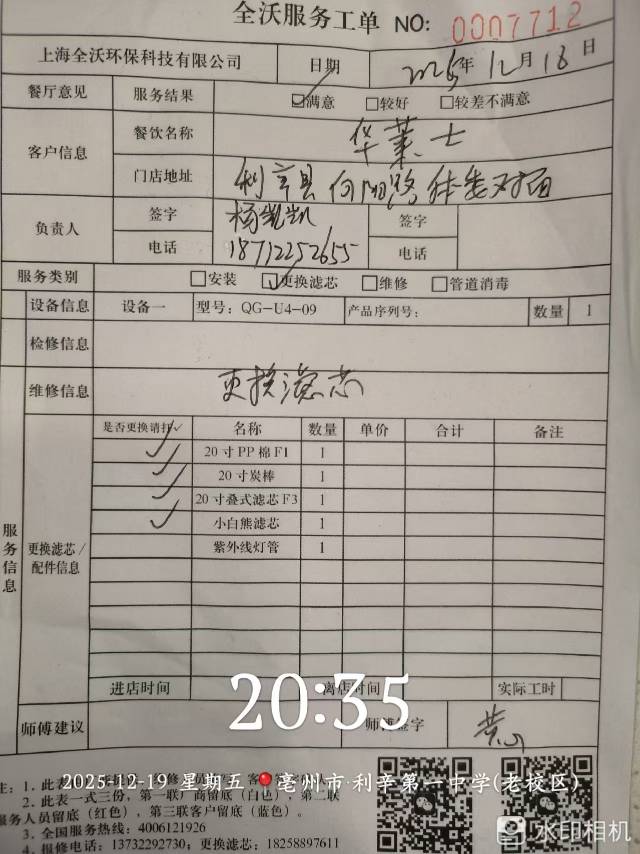 全沃服务工单 NO: 0007712
上海全沃环保科技有限公司 日期 2025年12月18日
餐厅意见 服务结果 ☑满意 □较好 □较差不满意
客户信息 餐饮名称 华莱士
门店地址 利辛县何阳路 对面
负责人 签字 杨凯凯 签字
电话 18712252655 电话
服务类别 □安装 ☑更换滤芯 □维修 □管道消毒
设备信息 设备一 型号: QG-U4-09 产品序列号: 数量 1
检修信息
维修信息 更换滤芯
是否更换请打✓ 名称 数量 单价 合计 备注
✓ 20寸PP棉F1 1
✓ 20寸炭棒 1
✓ 20寸叠式滤芯F3 1
✓ 小白熊滤芯 1
紫外线灯管 1
服务信息 更换滤芯/配件信息
进店时间 离店时间 实际工时
20:35
师傅建议 师傅签字
2025-12-19 星期五 亳州市·利辛第一中学(老校区)
注: 1. 此表
2. 此表一式三份, 第一联厂商留底(白色), 第二联
服务人员留底(红色), 第三联客户留底(蓝色)。
3. 全国服务热线: 4006121926
4. 报修电话: 13732292730; 更换滤芯: 18258897611
水印相机